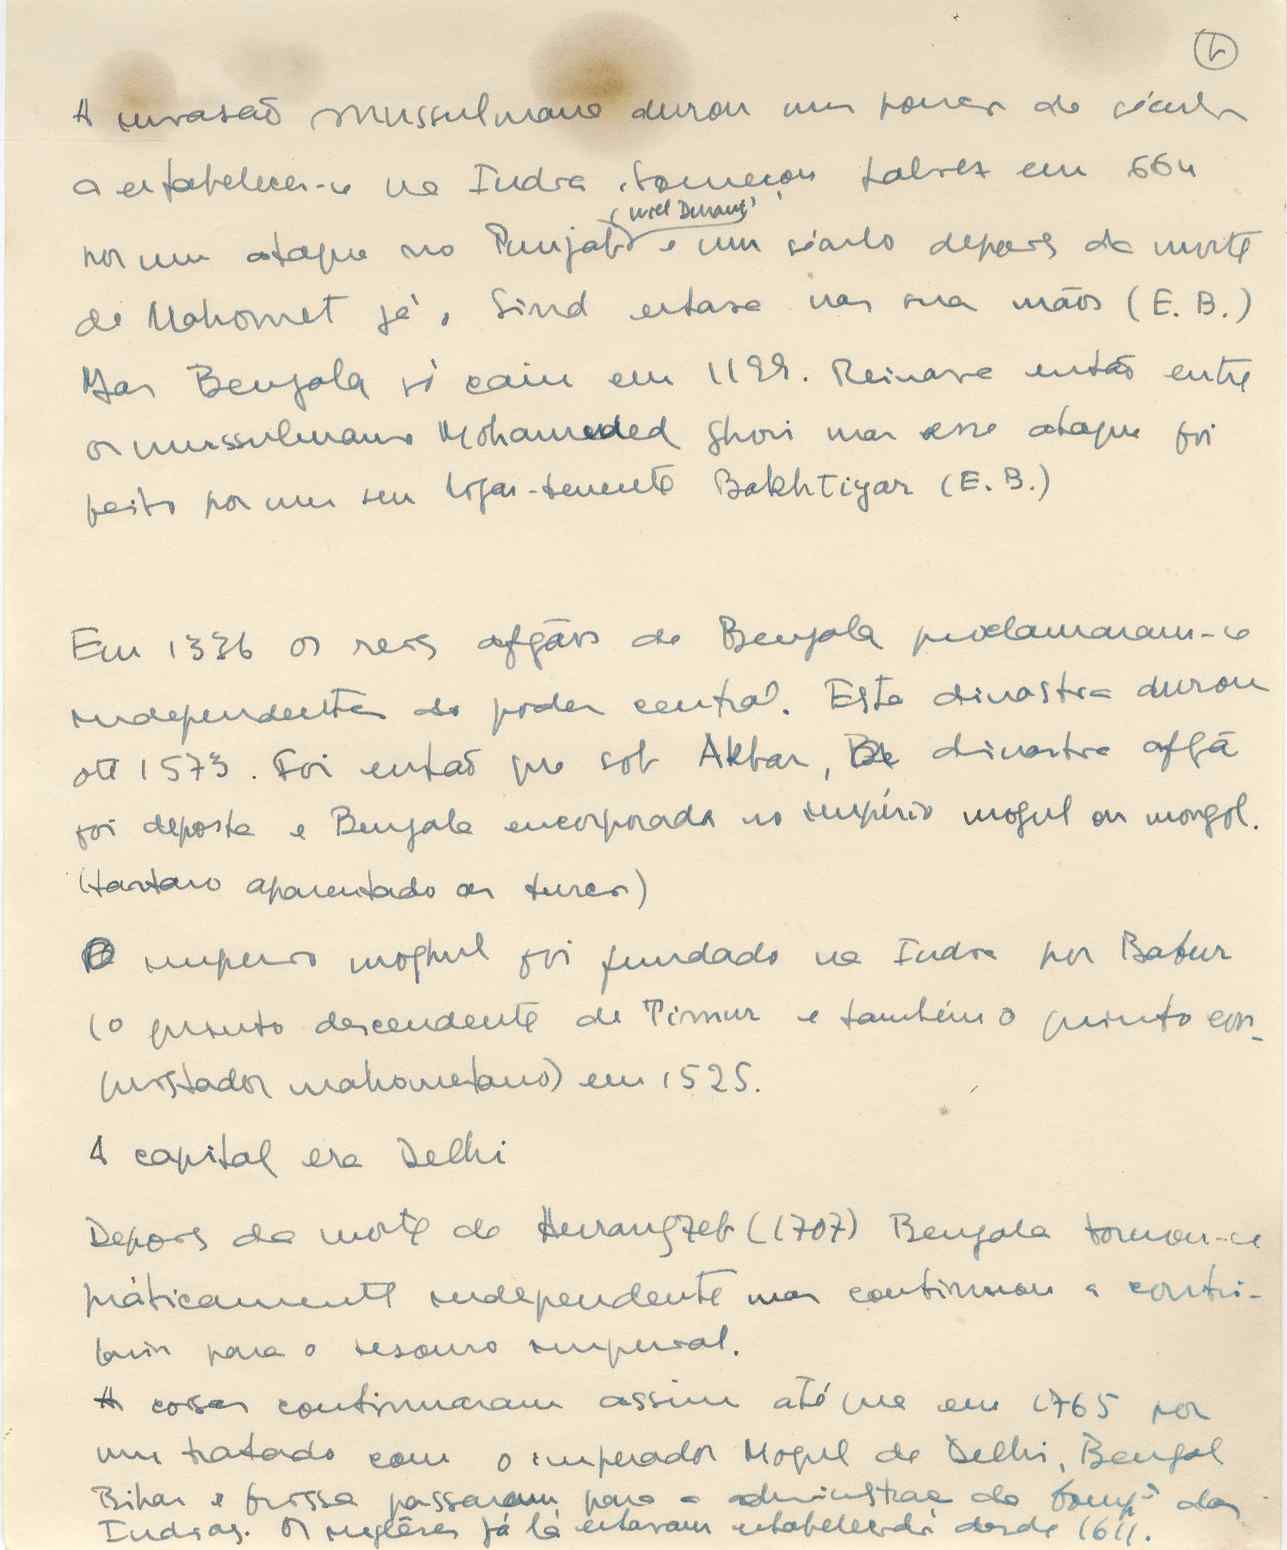 A invasão mussulmana durou uns poucos de séculos
a estabelecer-se na India. Começou talvez em 664
(Will Durant)
por um ataque no Punjab e um século depois da morte
de Mahomet já, Sind estava nas sua mãos (E. B.)
Mas Bengala só caiu em 1199. Reinava então entre
os mussulmanos Mohameded Ghori mas esse ataque foi
feito por um seu logar-tenente Bakhtiyar (E. B.)
Em 1336 os reis afgãos de Bengala proclamaram-se
independentes do poder central. Esta dinastia durou
até 1573. Foi então que sob Akbar, a dinastia afgã
foi deposta e Bengala encorporada no império mogul ou mongol.
(tartaro aparentado aos turcos)
O imperio moghul foi fundado na India por Babur
(o quinto descendente de Timur e também o quinto con-
quistador mahometano) em 1525.
A capital era Delhi
Depois da morte de Aurangzeb (1707) Bengala tornou-se
práticamente independente mas continuou a contri-
buir para o tesouro imperial.
As coisas continuaram assim até que em 1765 por
um tratado com o imperador Mogul de Delhi, Bengal
Bihar e Orissa passaram para a administração da Comp.ª das
Indias. Os inglêses já lá estavam estabelecidos desde 1611.